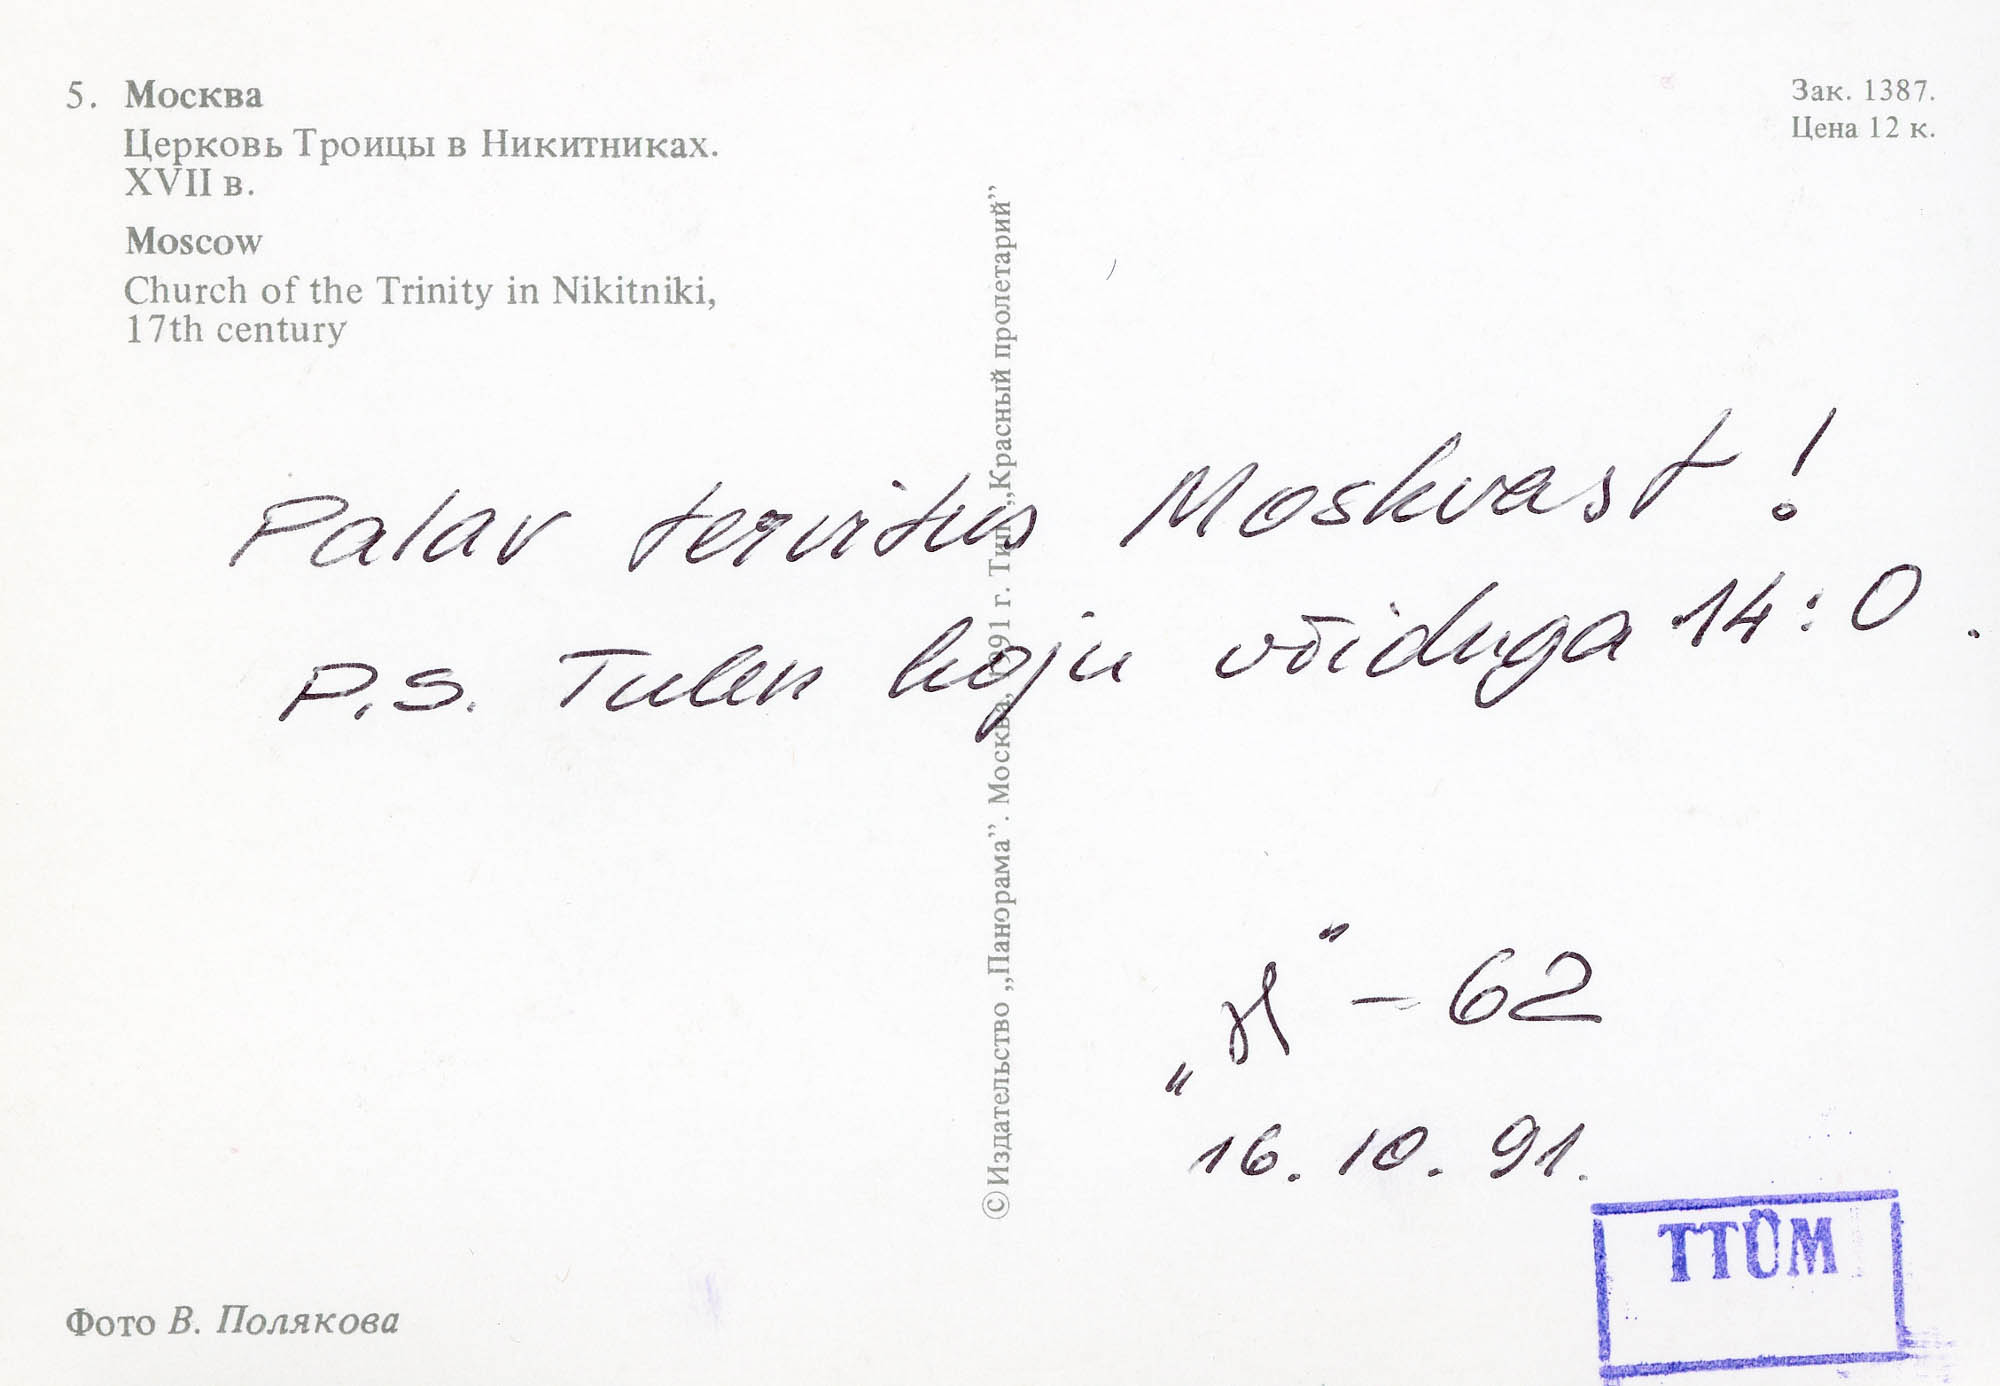 5. Москва
Церковь Троицы в Никитниках.
XVII в.
Moscow
Church of the Trinity in Nikitniki,
17th century
Зак. 1387.
Цена 12 к.
© Издательство „Панорама”. Москва, 1991 г. Тип. „Красный пролетарий”
Palav tervitus Moskvast!
P.S. Tulen koju võiduga 14:0.
„H" - 62
16.10.91.
TTÜM
Фото В. Полякова